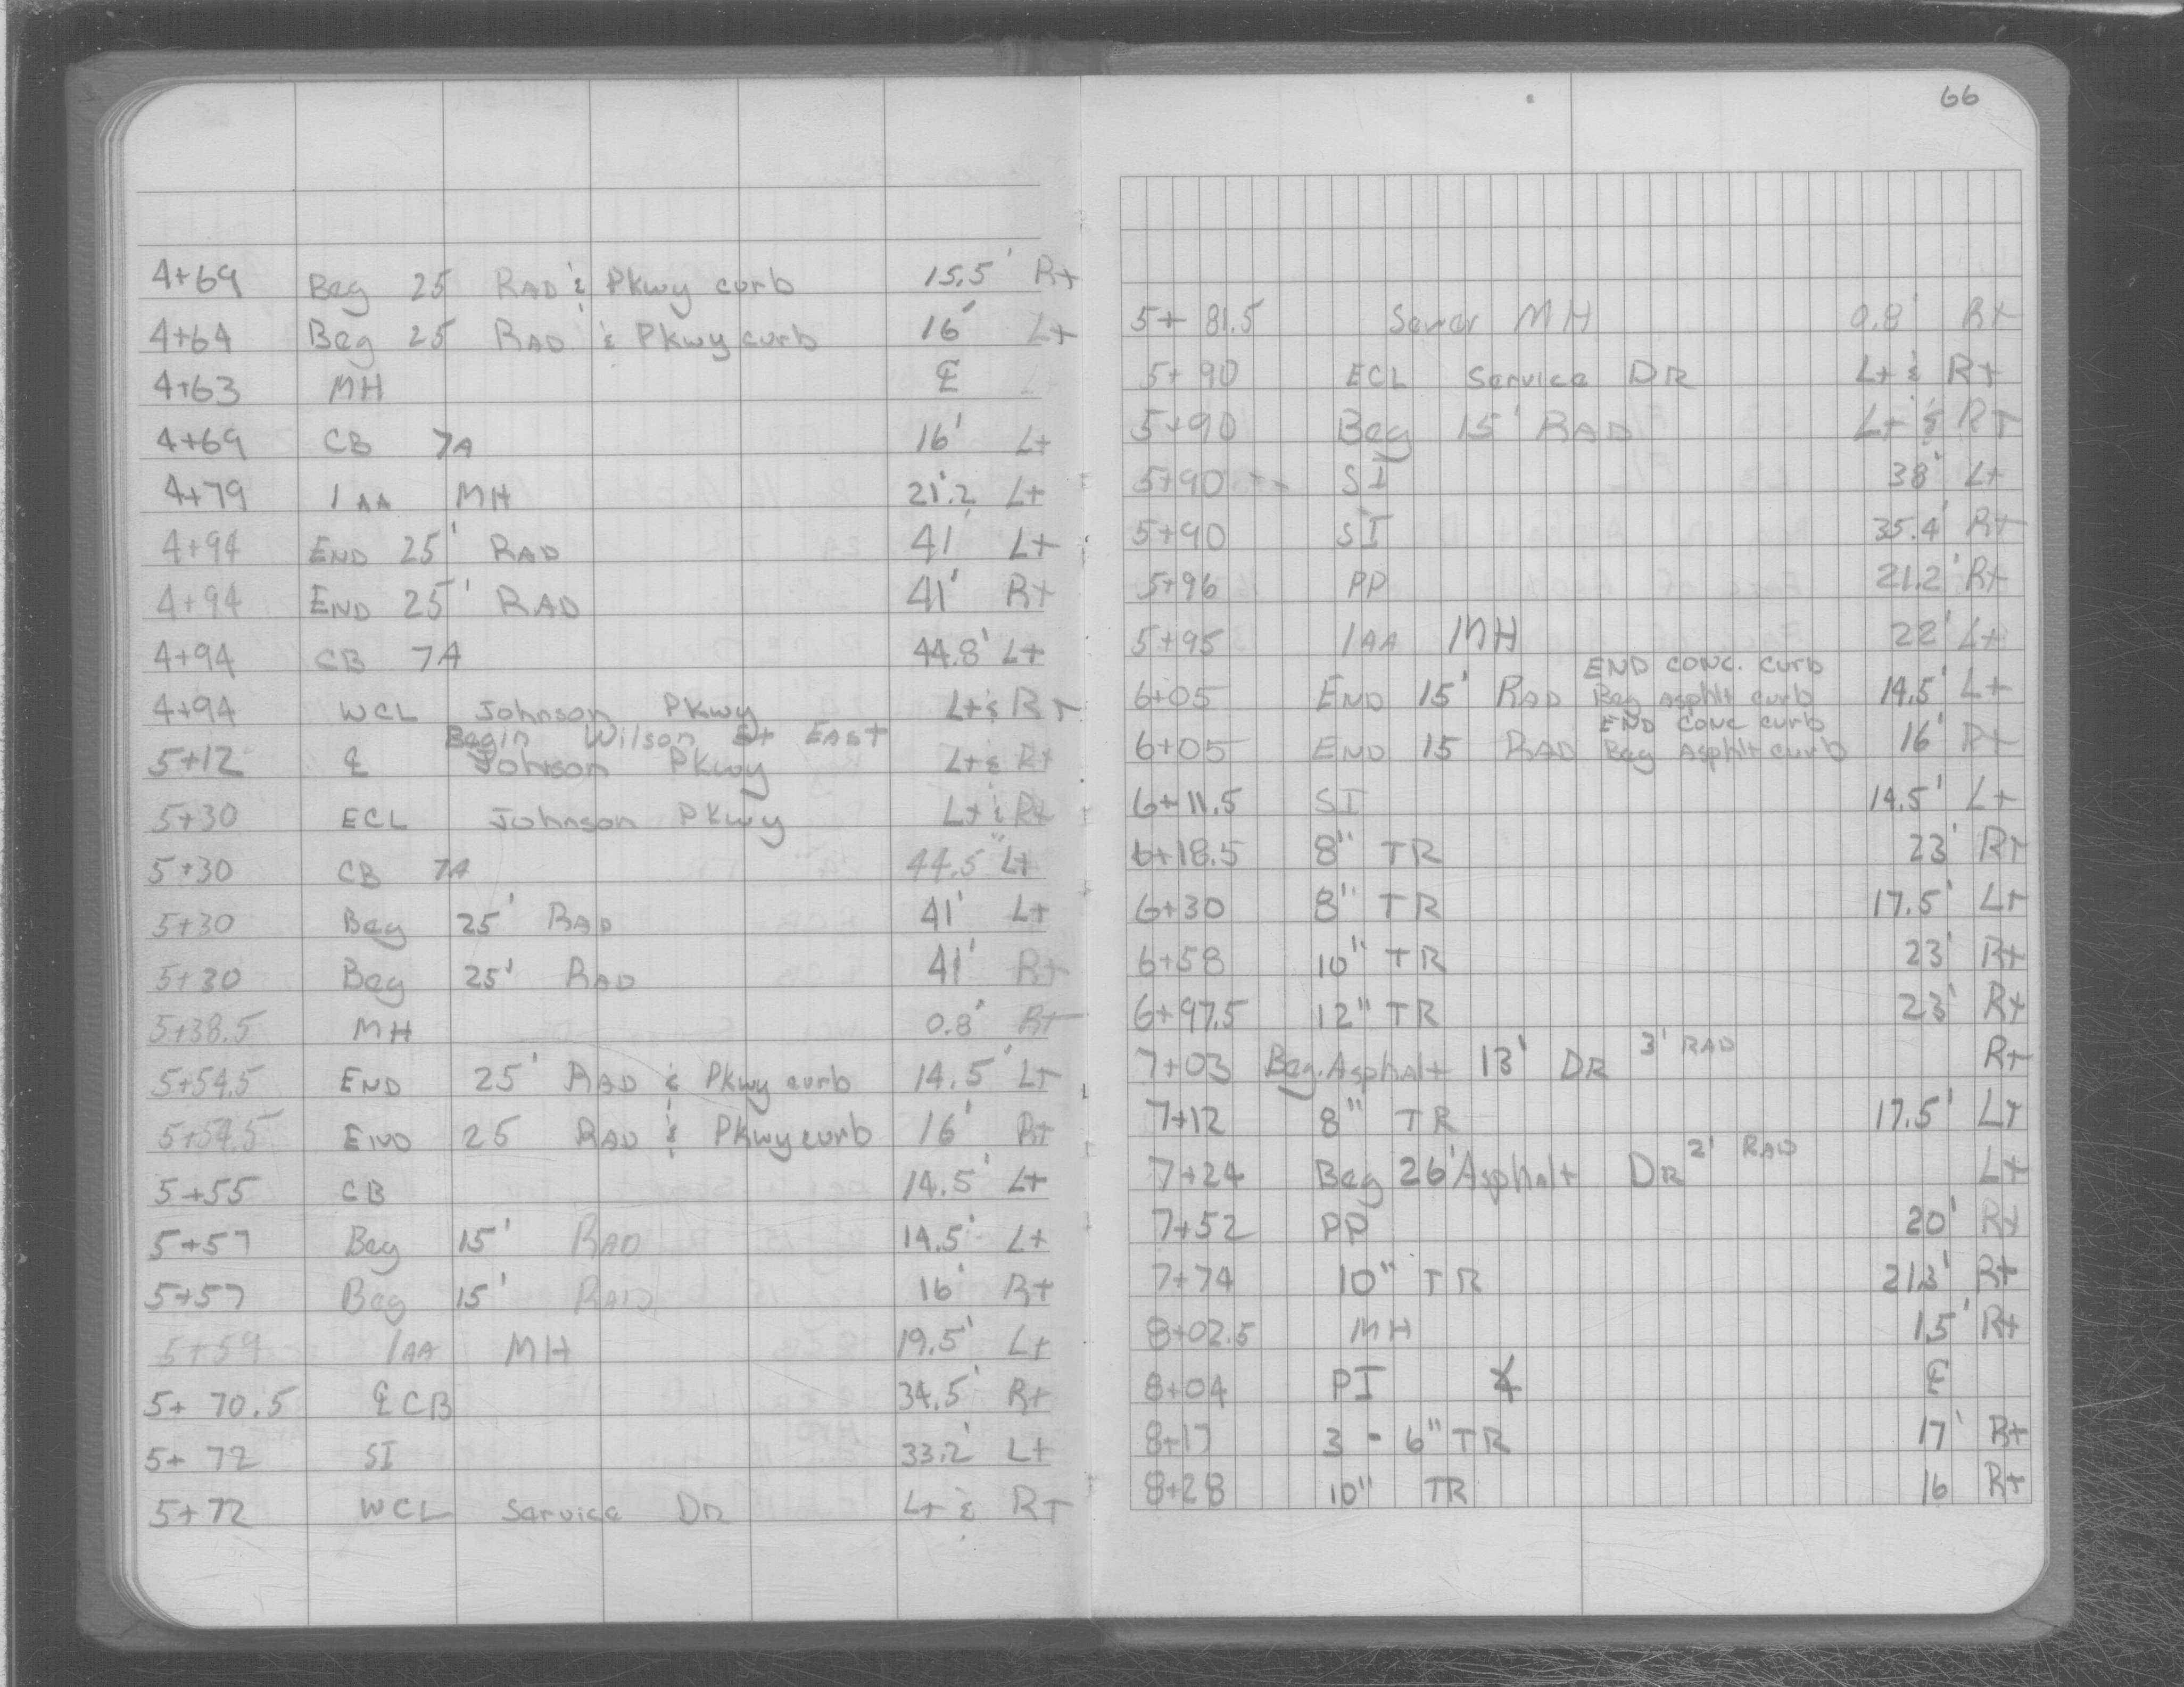 4+69 Beg 25 RAD & Pkwy curb 15.5' Rt
4+64 Beg 25 RAD & Pkwy curb 16' Lt
4+63 MH ℄
4+69 CB 7A 16' Lt
4+79 1AA MH 21.2' Lt
4+94 END 25' RAD 41' Lt
4+94 END 25' RAD 41' Rt
4+94 CB 7A 44.8' Lt
4+94 WCL Johnson Pkwy Lt & Rt
Begin Wilson St EAST
5+12 ℄ Johnson Pkwy Lt & Rt
5+30 ECL Johnson Pkwy Lt & Rt
5+30 CB 7A 44.5" Lt
5+30 Beg 25' RAD 41' Lt
5+30 Beg 25' RAD 41' Rt
5+38.5 MH 0.8' Rt
5+54.5 END 25' RAD & Pkwy curb 14.5' Lt
5+54.5 END 25 RAD & Pkwy curb 16' Rt
5+55 CB 14.5' Lt
5+57 Beg 15' RAD 14.5' Lt
5+57 Beg 15' RAD 16' Rt
5+59 1AA MH 19.5' Lt
5+70.5 ℄ CB 34.5' Rt
5+72 SI 33.2' Lt
5+72 WCL Service DR Lt & Rt
66
5+81.5 Sewer MH 0.8' Rt
5+90 ECL Service DR Lt & Rt
5+90 Beg 15' RAD Lt & Rt
5+90 SI 38' Lt
5+90 SI 35.4' Rt
5+96 PP 21.2' Rt
5+95 1AA MH 22' Lt
END CONC. curb
6+05 END 15' RAD Beg Asphlt curb 14.5' Lt
END CONC curb
6+05 END 15 RAD Beg Asphlt curb 16' Rt
6+11.5 SI 14.5' Lt
6+18.5 8" TR 23' Rt
6+30 8" TR 17.5' Lt
6+58 10" TR 23' Rt
6+97.5 12" TR 23' Rt
7+03 Beg. Asphalt 13' DR 3' RAD Rt
7+12 8" TR 17.5' Lt
7+24 Beg 26' Asphalt DR 2' RAD Lt
7+52 PP 20' Rt
7+74 10" TR 21.3' Rt
8+02.5 MH 1.5' Rt
8+04 PI ℄
8+17 3 - 6" TR 17' Rt
8+28 10" TR 16 Rt